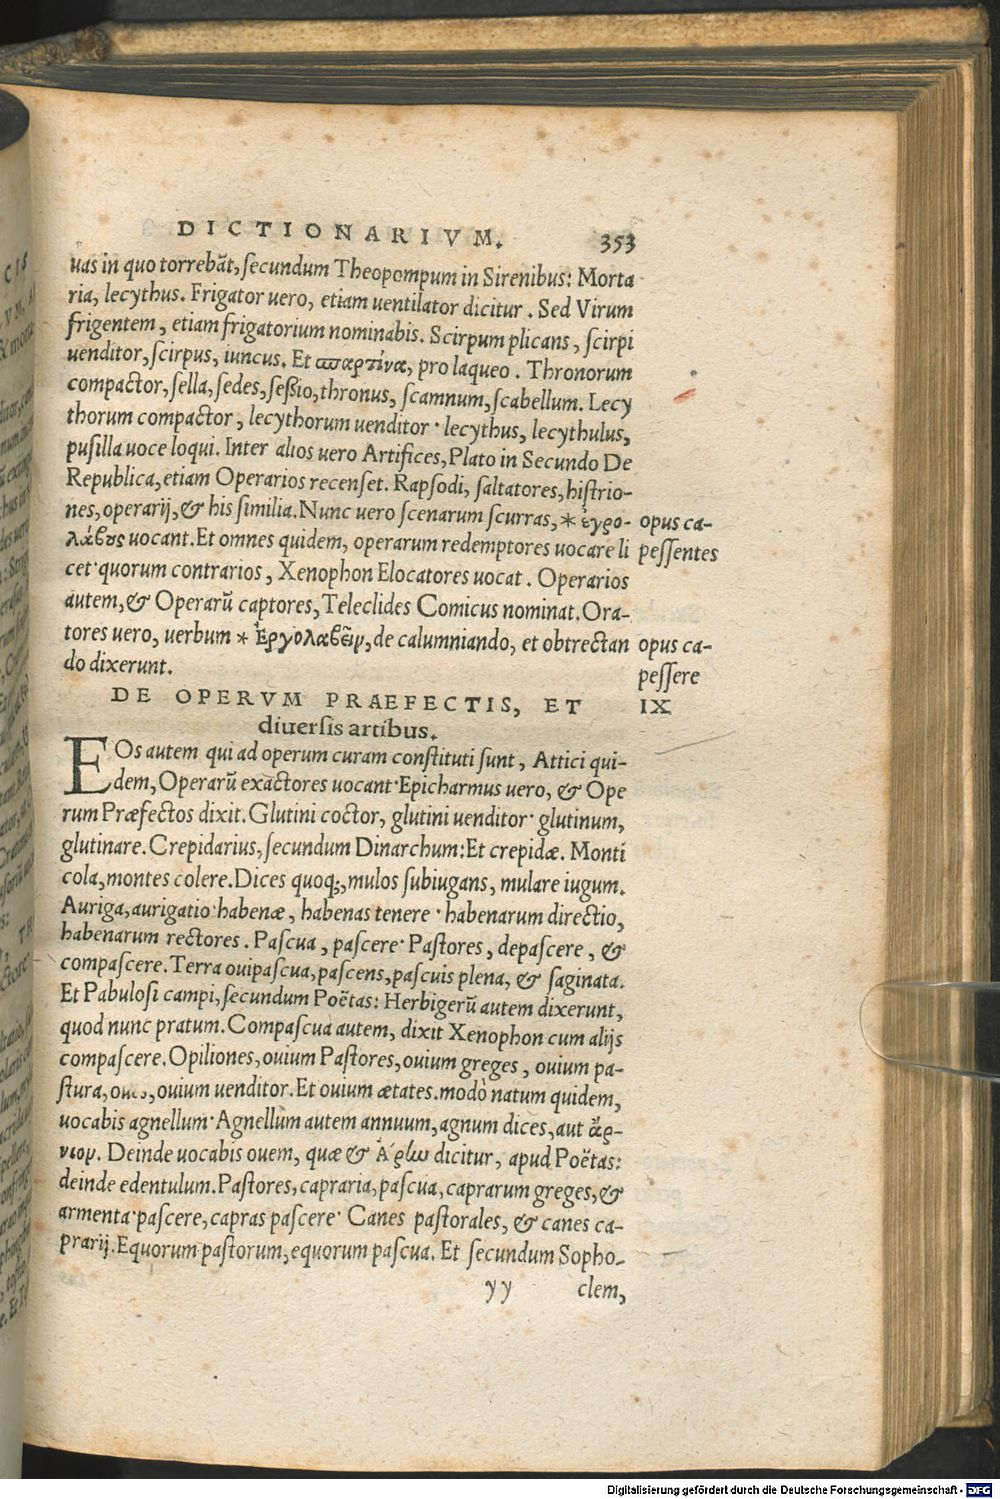 DICTIONARIVM. 353
uas in quo torrebāt, ſecundum Theopompum in Sirenibus: Morta
ria, lecythus. Frigator uero, etiam uentilator dicitur. Sed Virum
frigentem, etiam frigatorium nominabis. Scirpum plicans, ſcirpi
uenditor, ſcirpus, iuncus. Et σπαρτίνα, pro laqueo. Thronorum
compactor, ſella, ſedes, ſeßio, thronus, ſcamnum, ſcabellum. Lecy
thorum compactor, lecythorum uenditor· lecythus, lecythulus,
puſilla uoce loqui. Inter alios uero Artifices, Plato in Secundo De
Republica, etiam Operarios recenſet. Rapſodi, ſaltatores, hiſtrio-
nes, operarij, & his ſimilia. Nunc uero ſcenarum ſcurras, * ἐργο- opus ca-
λάβους uocant. Et omnes quidem, operarum redemptores uocare li peſſentes
cet· quorum contrarios, Xenophon Elocatores uocat. Operarios
autem, & Operarū captores, Teleclides Comicus nominat. Ora-
tores uero, uerbum * Ἐργολαβεῖν, de calumniando, et obtrectan opus ca-
do dixerunt. peſſere
DE OPERVM PRAEFECTIS, ET IX
diuerſis artibus.
EOs autem qui ad operum curam conſtituti ſunt, Attici qui-
dem, Operarū exactores uocant· Epicharmus uero, & Ope
rum Præfectos dixit. Glutini coctor, glutini uenditor· glutinum,
glutinare. Crepidarius, ſecundum Dinarchum: Et crepidæ. Monti
cola, montes colere. Dices quoq;, mulos ſubiugans, mulare iugum.
Auriga, aurigatio· habenæ, habenas tenere· habenarum directio,
habenarum rectores. Paſcua, paſcere· Paſtores, depaſcere, &
compaſcere. Terra ouipaſcua, paſcens, paſcuis plena, & ſaginata.
Et Pabuloſi campi, ſecundum Poëtas: Herbigerū autem dixerunt,
quod nunc pratum. Compaſcua autem, dixit Xenophon cum alijs
compaſcere. Opiliones, ouium Paſtores, ouium greges, ouium pa-
ſtura, ouium uenditor. Et ouium ætates. modò natum quidem,
uocabis agnellum· Agnellum autem annuum, agnum dices, aut ἄρ-
νιον. Deinde uocabis ouem, quæ & dicitur, apud Poëtas:
deinde edentulum. Paſtores, capraria, paſcua, caprarum greges, &
armenta· paſcere, capras paſcere· Canes paſtorales, & canes ca-
prarij. Equorum paſtorum, equorum paſcua. Et ſecundum Sopho-
yy clem,
Digitalisierung gefördert durch die Deutsche Forschungsgemeinschaft - DFG